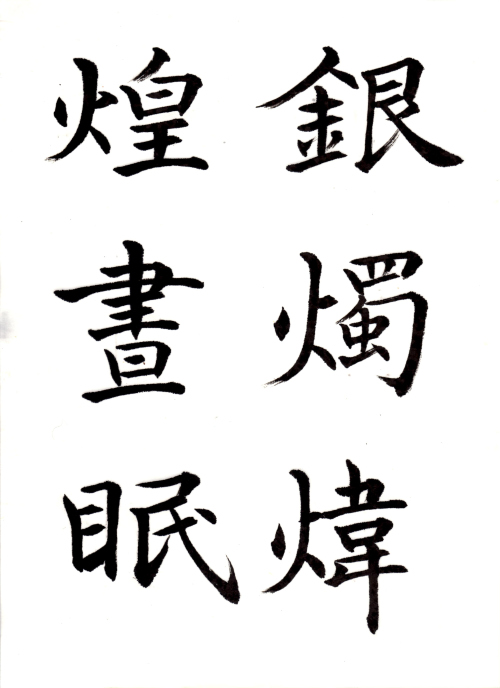 銀燭煒
煌晝眠